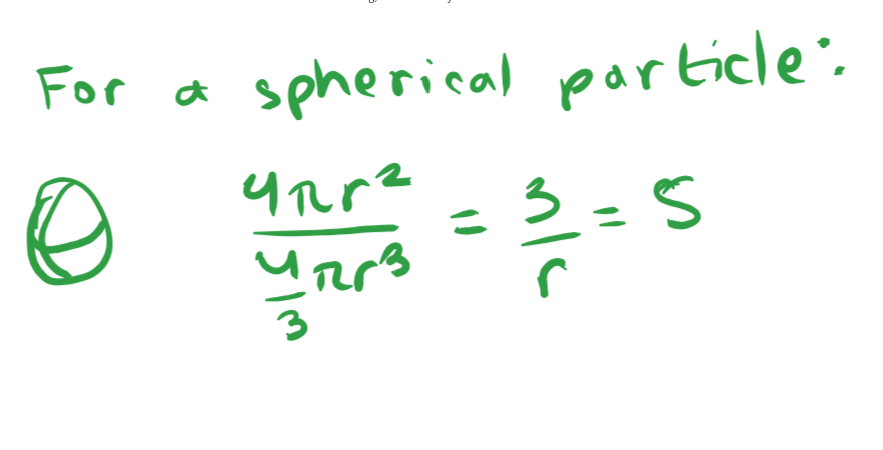 For a spherical particle:
4πr² / (4/3 πr³) = 3/r = S